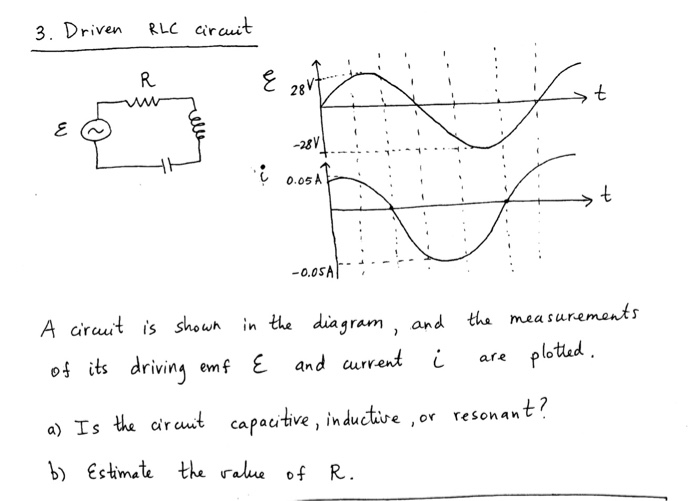 3. Driven RLC circuit
R
ε
ε
28V
t
-28V
i
0.05A
t
-0.05A
A circuit is shown in the diagram, and the measurements
of its driving emf ε and current i are plotted.
a) Is the circuit capacitive, inductive, or resonant?
b) Estimate the value of R.